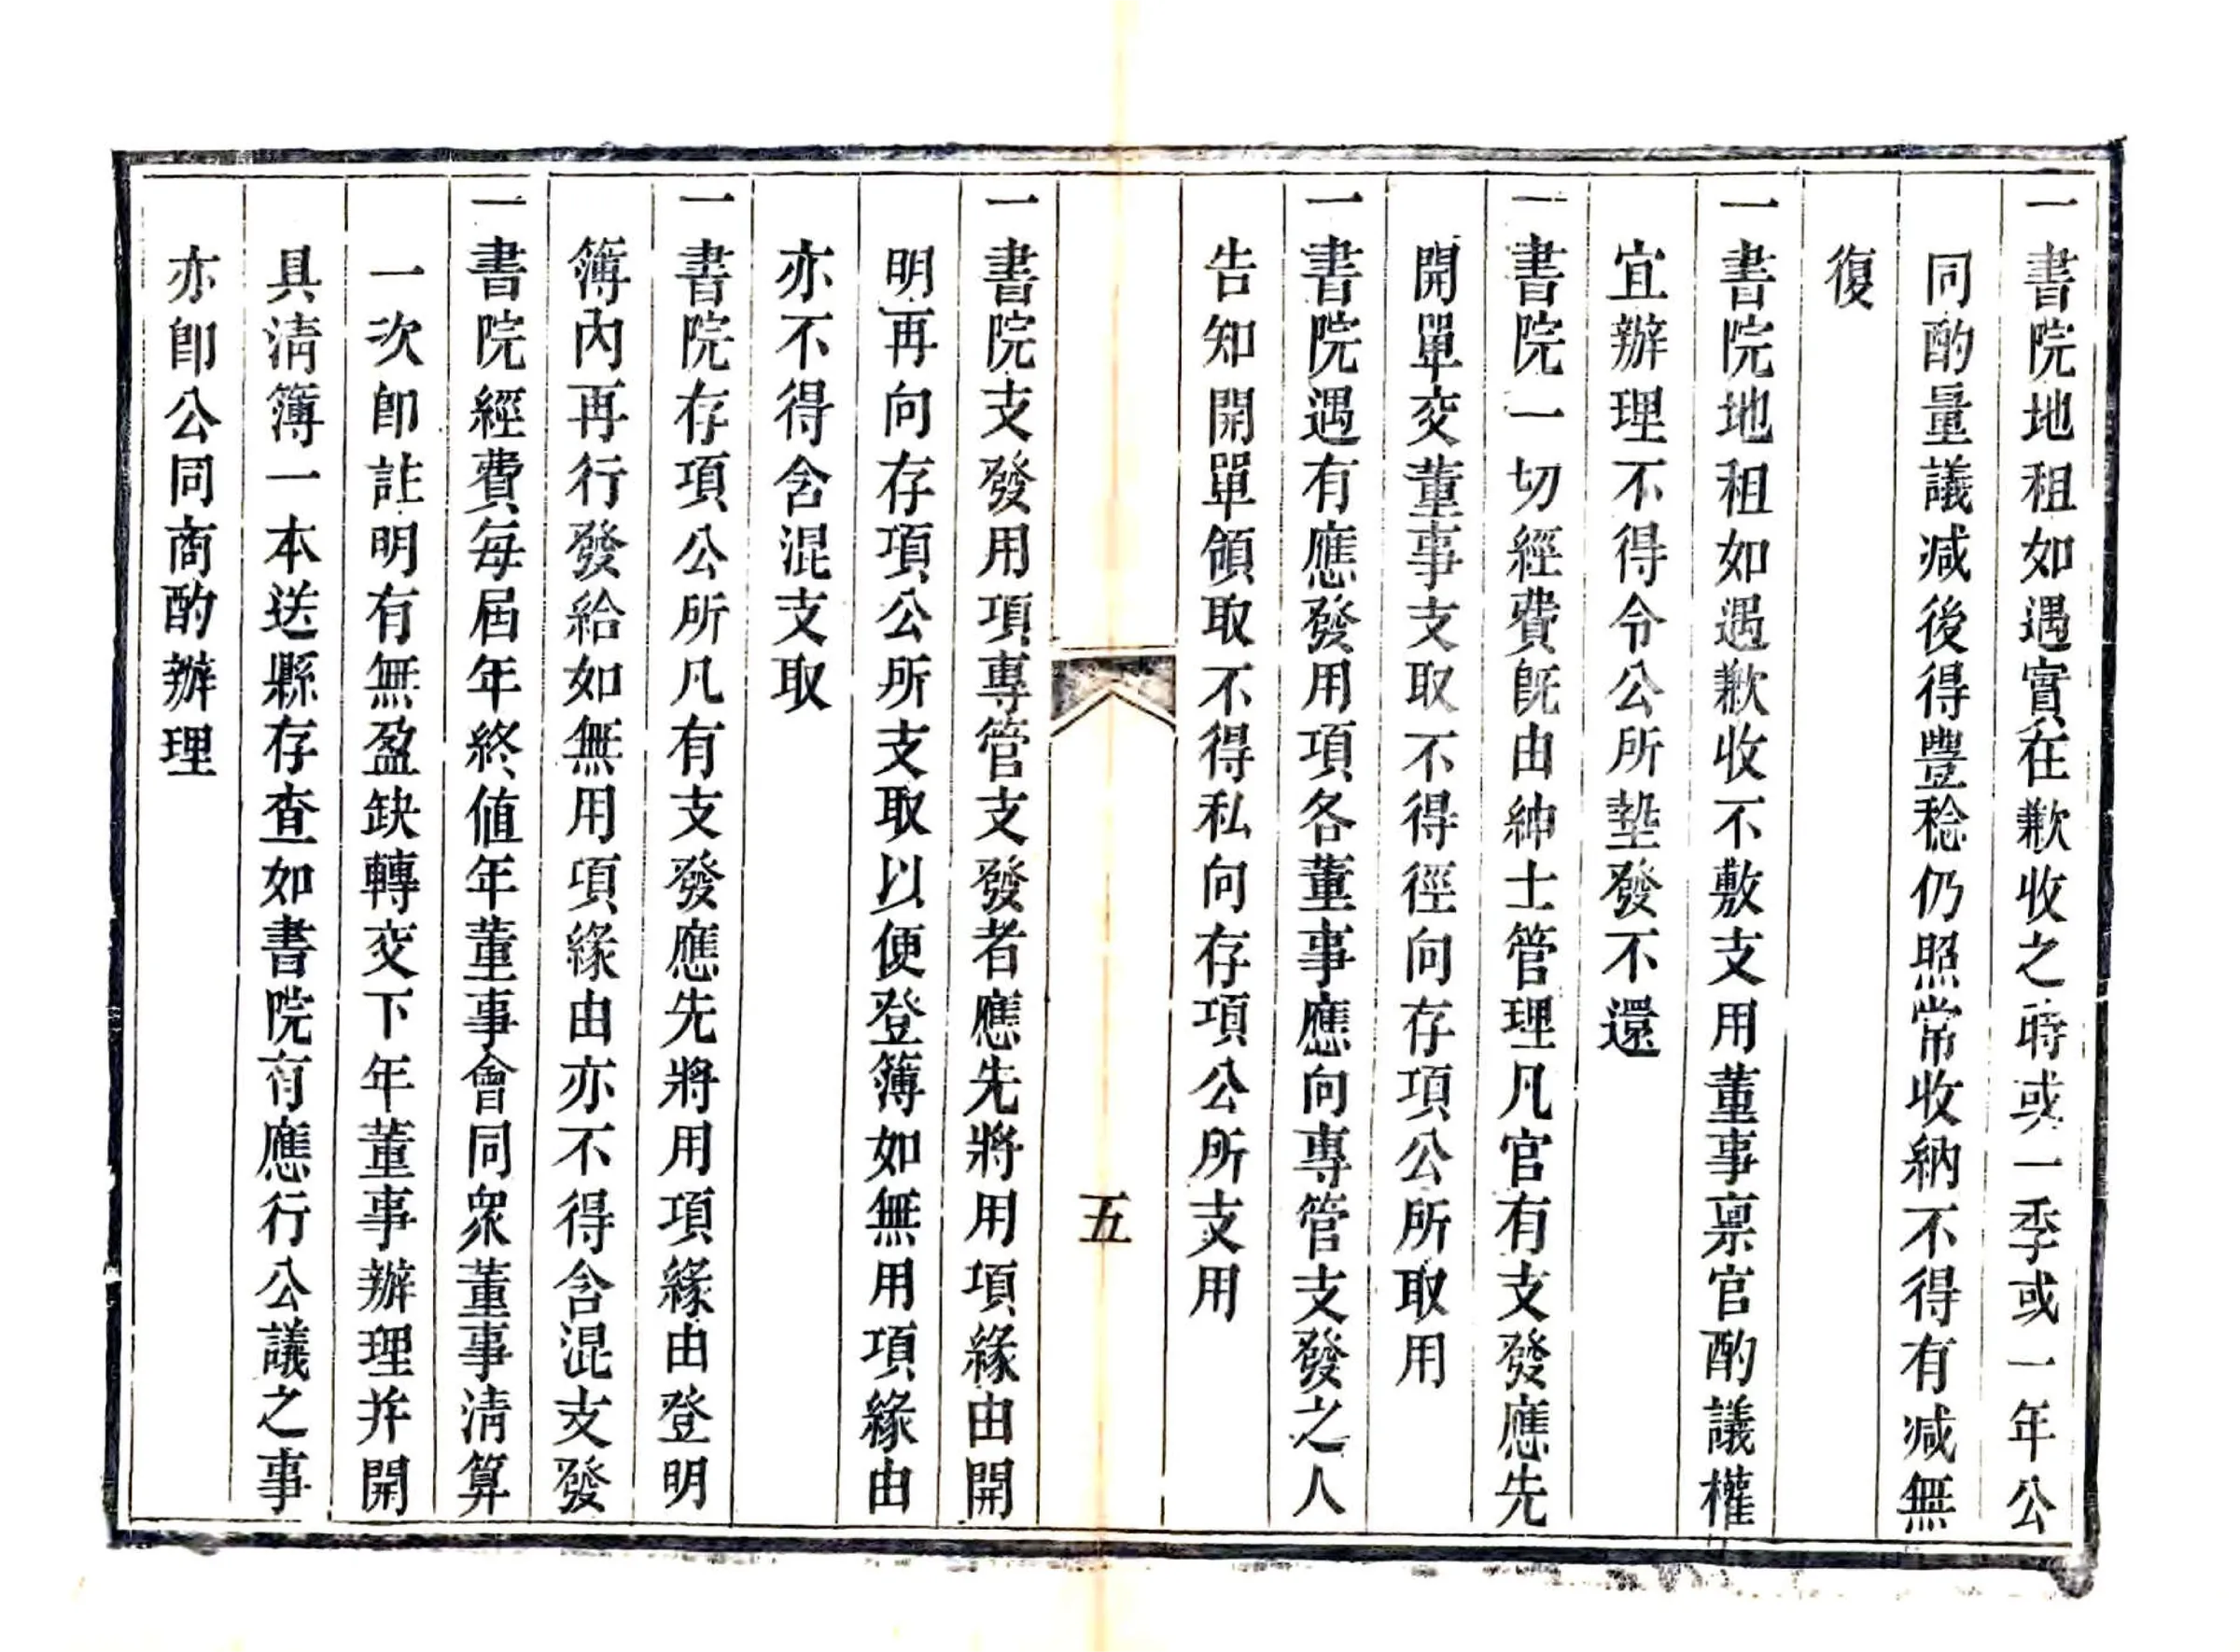 一書院地租如遇實在歉收之時或一季或一年公
同酌量議减後得豐稔仍照常收納不得有减無
復
一書院地租如遇歉收不敷支用董事禀官酌議權
宜辦理不得令公所墊發不還
一書院一切經費旣由紳士管理凡官有支發應先
開單交董事支取不得徑向存項公所取用
一書院遇有應發用項各董事應向專管支發之人
告知開單領取不得私向存項公所支用
五
一書院支發用項專管支發者應先將用項緣由開
明再向存項公所支取以便登簿如無用項緣由
亦不得含混支取
一書院存項公所凡有支發應先將用項緣由登明
簿內再行發給如無用項緣由亦不得含混支發
一書院經費每屆年終値年董事會同眾董事清算
一次卽註明有無盈缺轉交下年董事辦理并開
具清簿一本送縣存查如書院有應行公議之事
亦卽公同商酌辦理